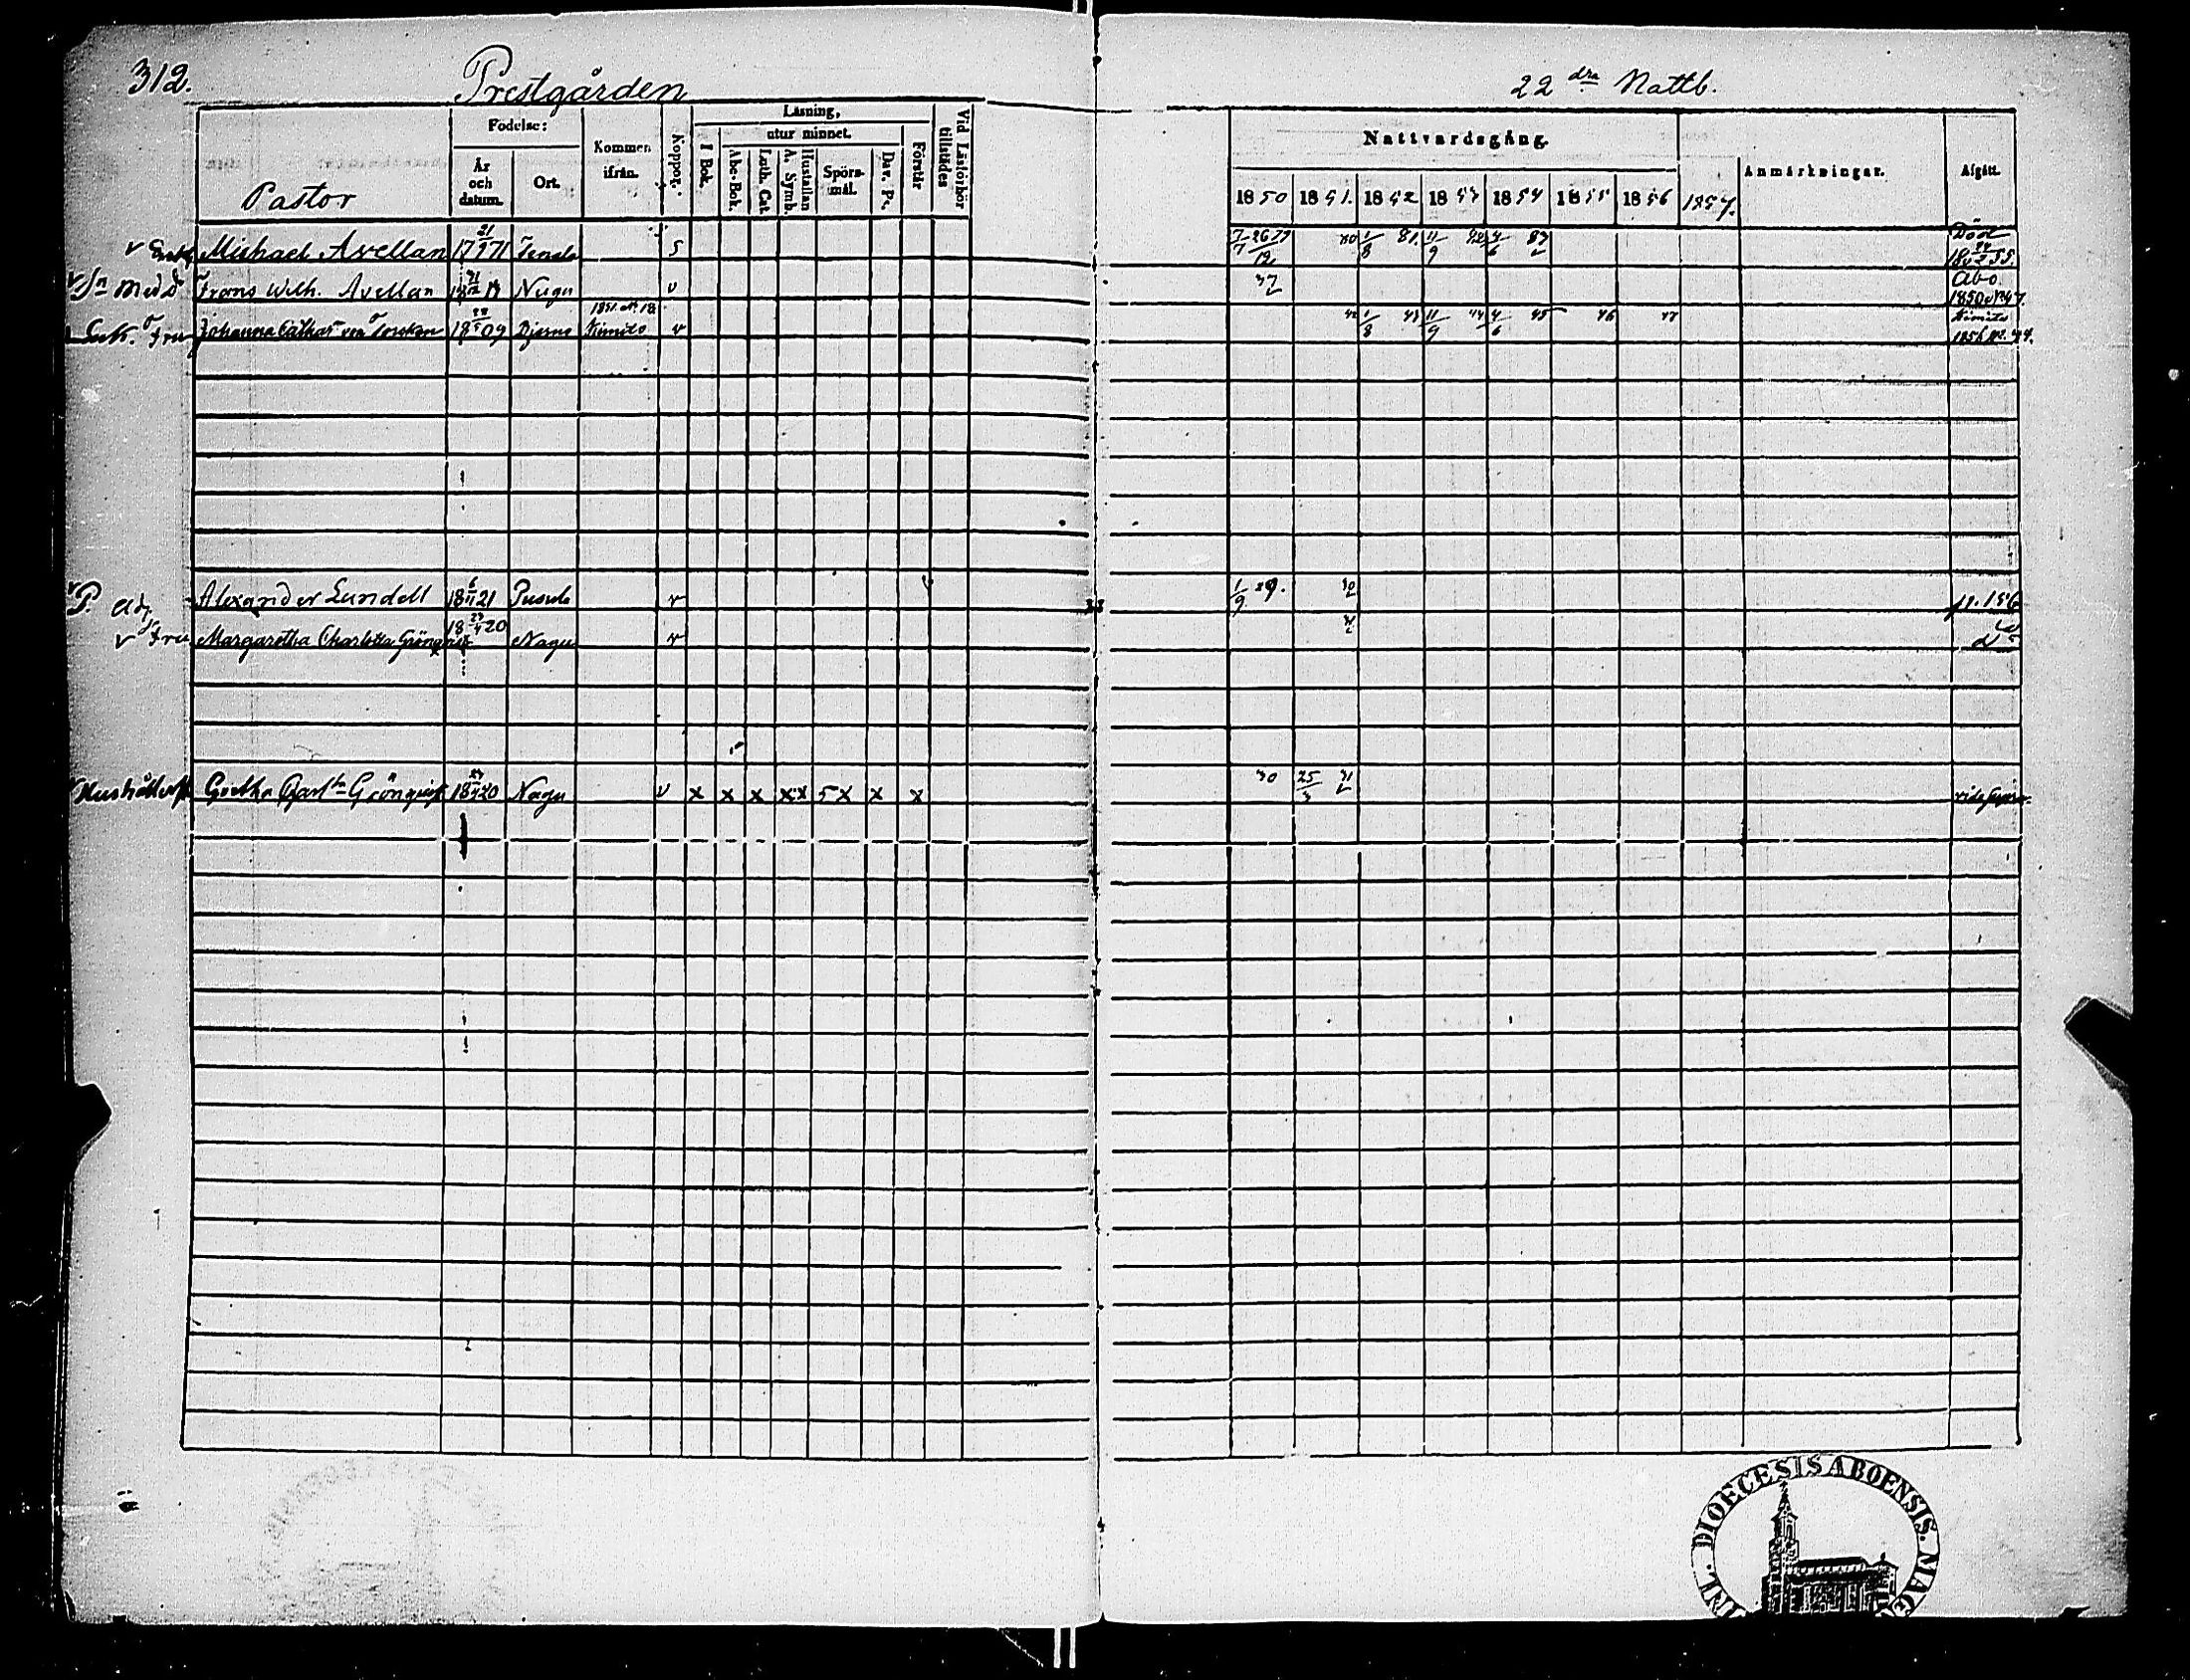 312.
Prestgården
22 dra Nattb.
Läsning,
Födelse:
utur minnet.
Kommen ifrån.
Koppor.
I Bok.
Abc-Bok.
Luth. Cat.
Hustaflan A. Symb.
Spörsmål.
Dav. Ps.
Förstår
Vid Läsförhör tillstädes
År och datum.
Ort.
Nattvardsgång.
Anmärkningar.
Afgått.
1850 1851. 1852 1853 1854 1855 1856 1857.
Pastor
v Enkl. Michael Avellan 17 21/9 71 Tenala 5 7/7 26 79 12 80 1/8 81. 11/9 82 4/6 83 Död 1855.
v Sn Med. Frans Wilh. Avellan Nagu v 37 Åbo. 1850 No 47.
Enk. Fru Johanna Cathar. von 1809 Bjerno 1851. No. 18. Kimito v 42 1/8 43 11/9 44 4/6 45 46 47 Kimito 1856 No. 44.
v P. Adj. Alexander Lundell 18 6/11 21 Pusula v 1/9 29. 30 p. 156
v Fru Margaretha Charlotta Grönqvist 18 23/4 20 Nagu v 31
v Hushållersk. Gretha Charl:ta Grönqvist 18 23/4 20 Nagu v x x x xx 5x x x 30 25/3 31 vide supra.
DIOECESIS ABOENSIS. MAG